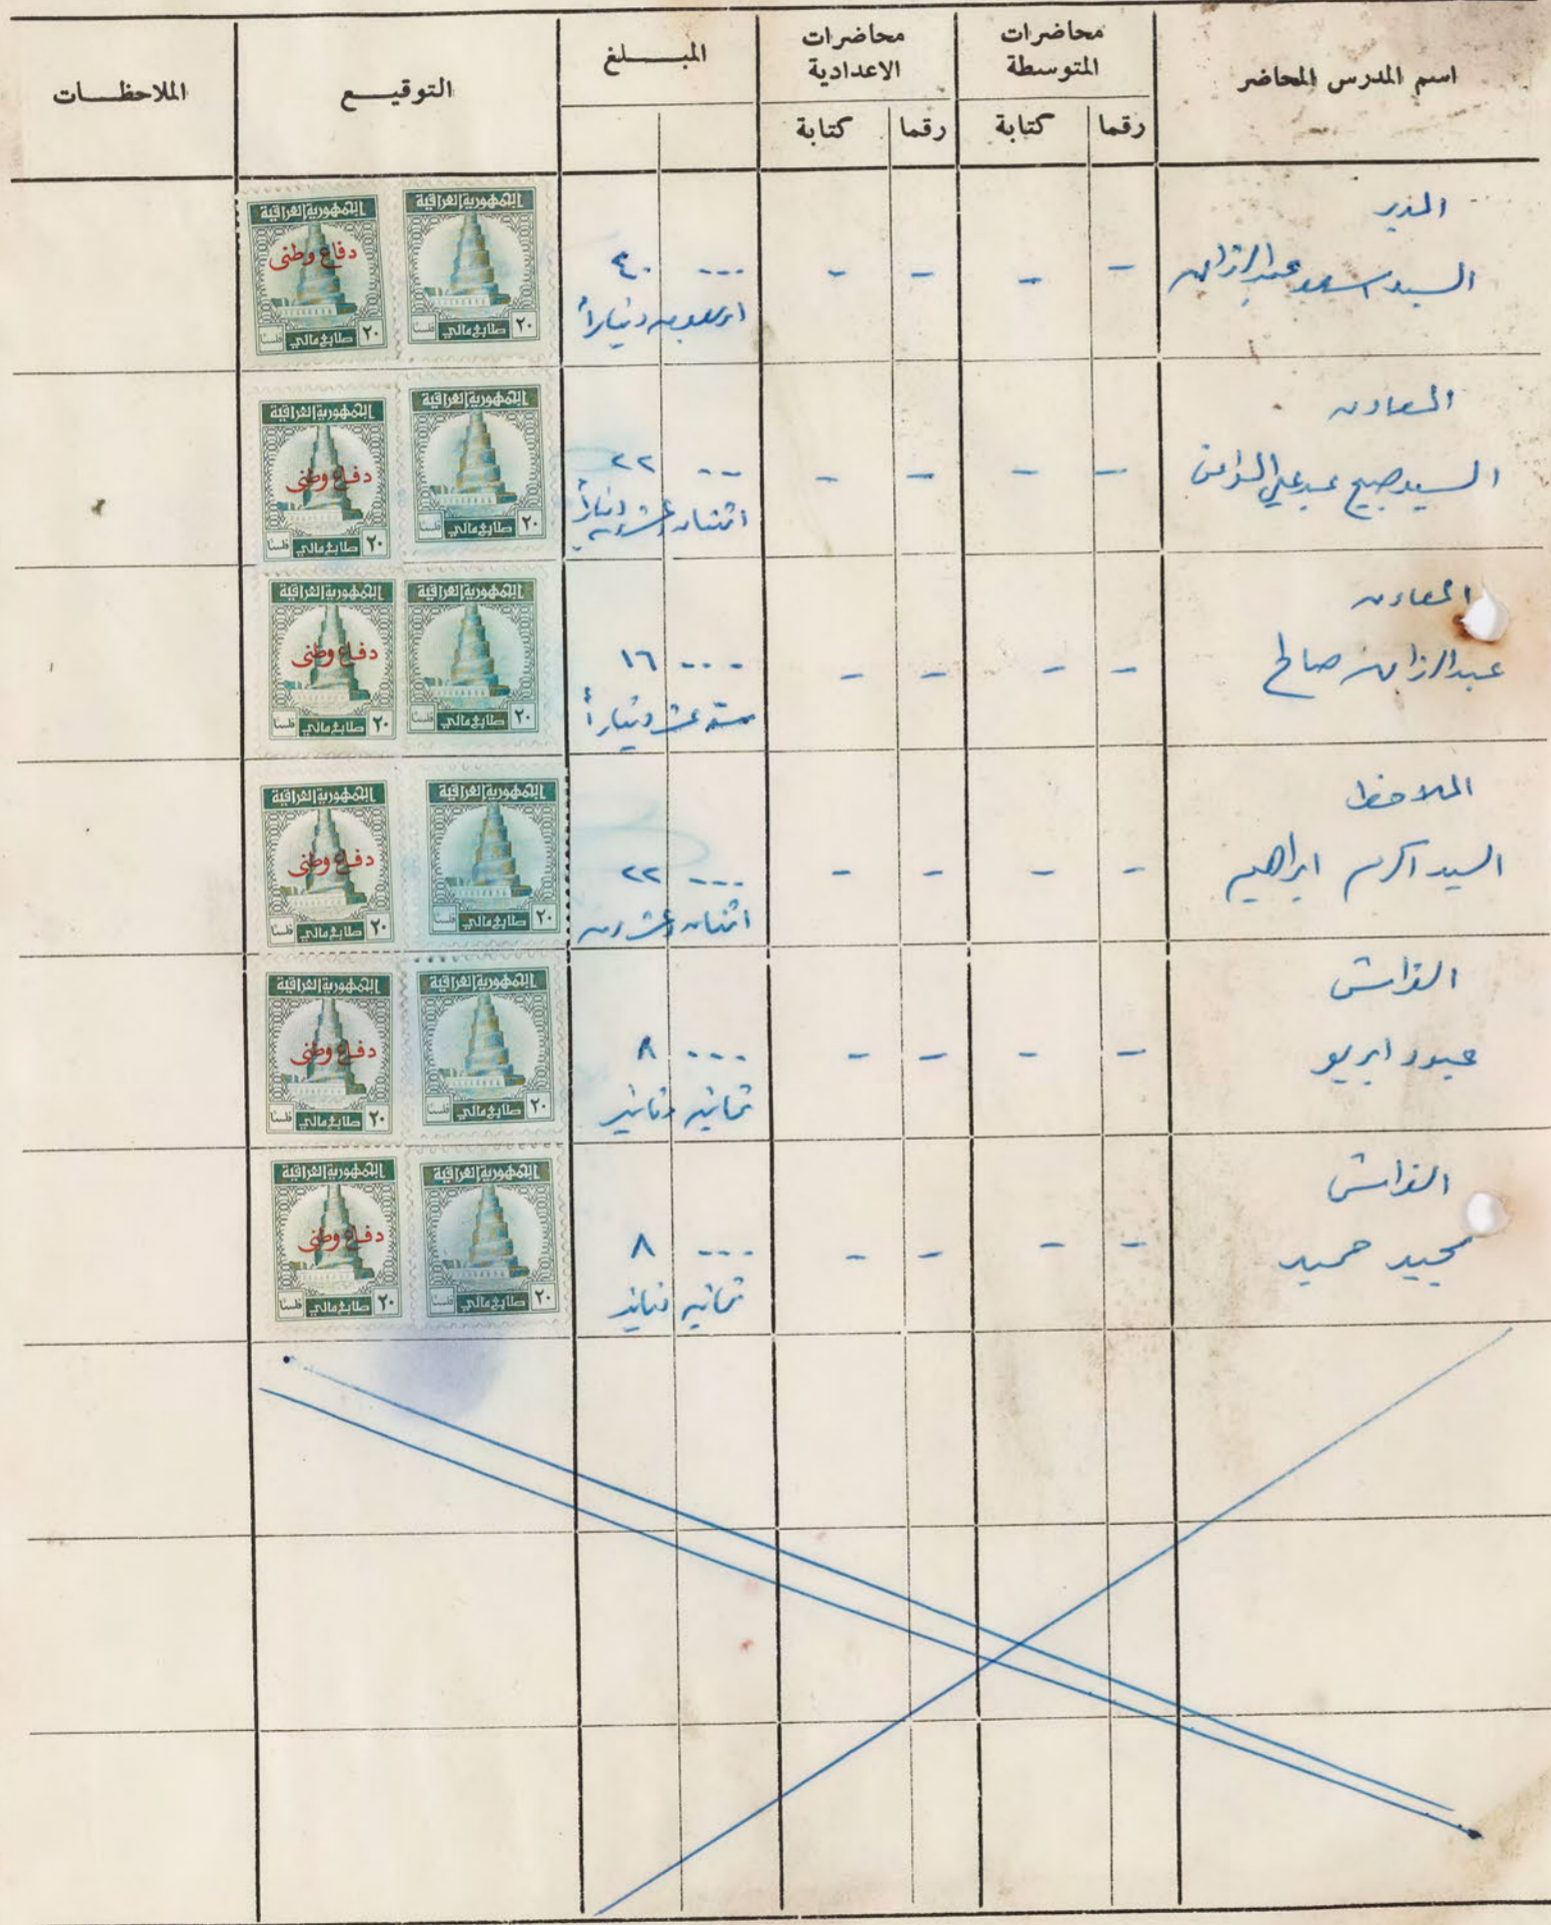 اسم المدرس المحاضر
محاضرات المتوسطة
رقما
كتابة
محاضرات الاعدادية
رقما
كتابة
المبلغ
التوقيع
الملاحظات
المدير
السيد سعد عبدالرزاق
- - - -
... ٤٠
اربعون ديناراً
الجمهورية العراقية
٢٠ طابع مالي فلسا
الجمهورية العراقية
دفاع وطني
٢٠ طابع مالي فلسا
المعاون
السيد صبيح عبدعلي
- - - -
... ٢٢
اثنان وعشرون ديناراً
الجمهورية العراقية
٢٠ طابع مالي فلسا
الجمهورية العراقية
دفاع وطني
٢٠ طابع مالي فلسا
المعاون
عبدالرزاق صالح
- - - -
... ١٦
ستة عشر ديناراً
الجمهورية العراقية
٢٠ طابع مالي فلسا
الجمهورية العراقية
دفاع وطني
٢٠ طابع مالي فلسا
الملاحظ
السيد اكرم ابراهيم
- - - -
... ٢٢
اثنان وعشرون
الجمهورية العراقية
٢٠ طابع مالي فلسا
الجمهورية العراقية
دفاع وطني
٢٠ طابع مالي فلسا
الفراش
عبود
- - - -
... ٨
ثمانية دنانير
الجمهورية العراقية
٢٠ طابع مالي فلسا
الجمهورية العراقية
دفاع وطني
٢٠ طابع مالي فلسا
الفراش
مجيد حميد
- - - -
... ٨
ثمانية دنانير
الجمهورية العراقية
٢٠ طابع مالي فلسا
الجمهورية العراقية
دفاع وطني
٢٠ طابع مالي فلسا